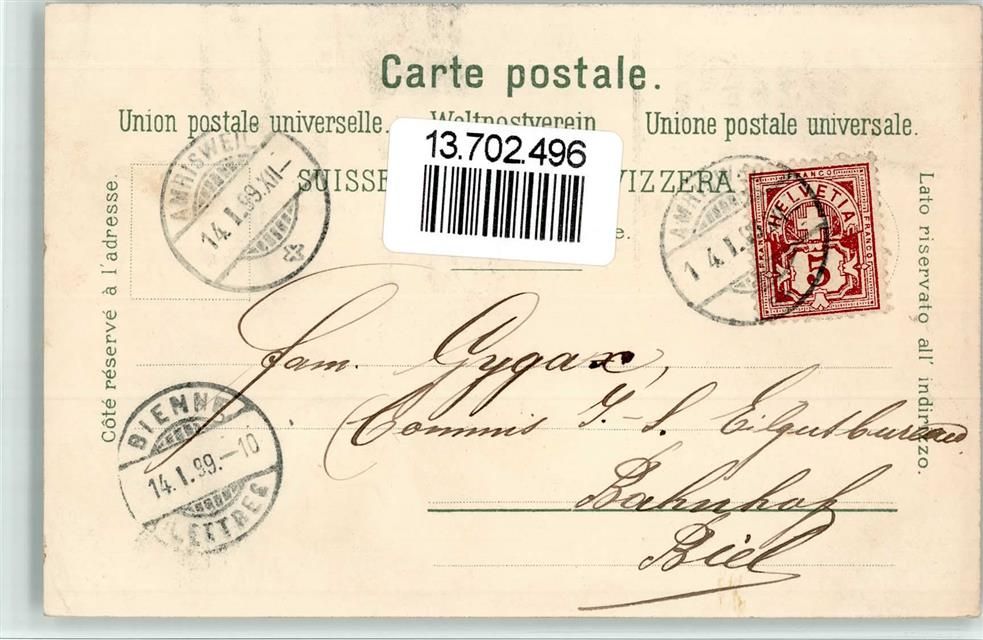 Carte postale.
Union postale universelle. Weltpostverein Unione postale universale.
13.702.496
SUISSE VIZZERA
AMRISWEIL
14.I.99.XII-
AMRISWEIL
14.I.99
FRANCO
HELVETIA
5
Côté réservé à l'adresse.
Lato riservato all' indirizzo.
BIENNE
14.I.99.-10
LETTRES
fam. Gygax,
Commis J. S. Eilgutbureau
Bahnhof
Biel